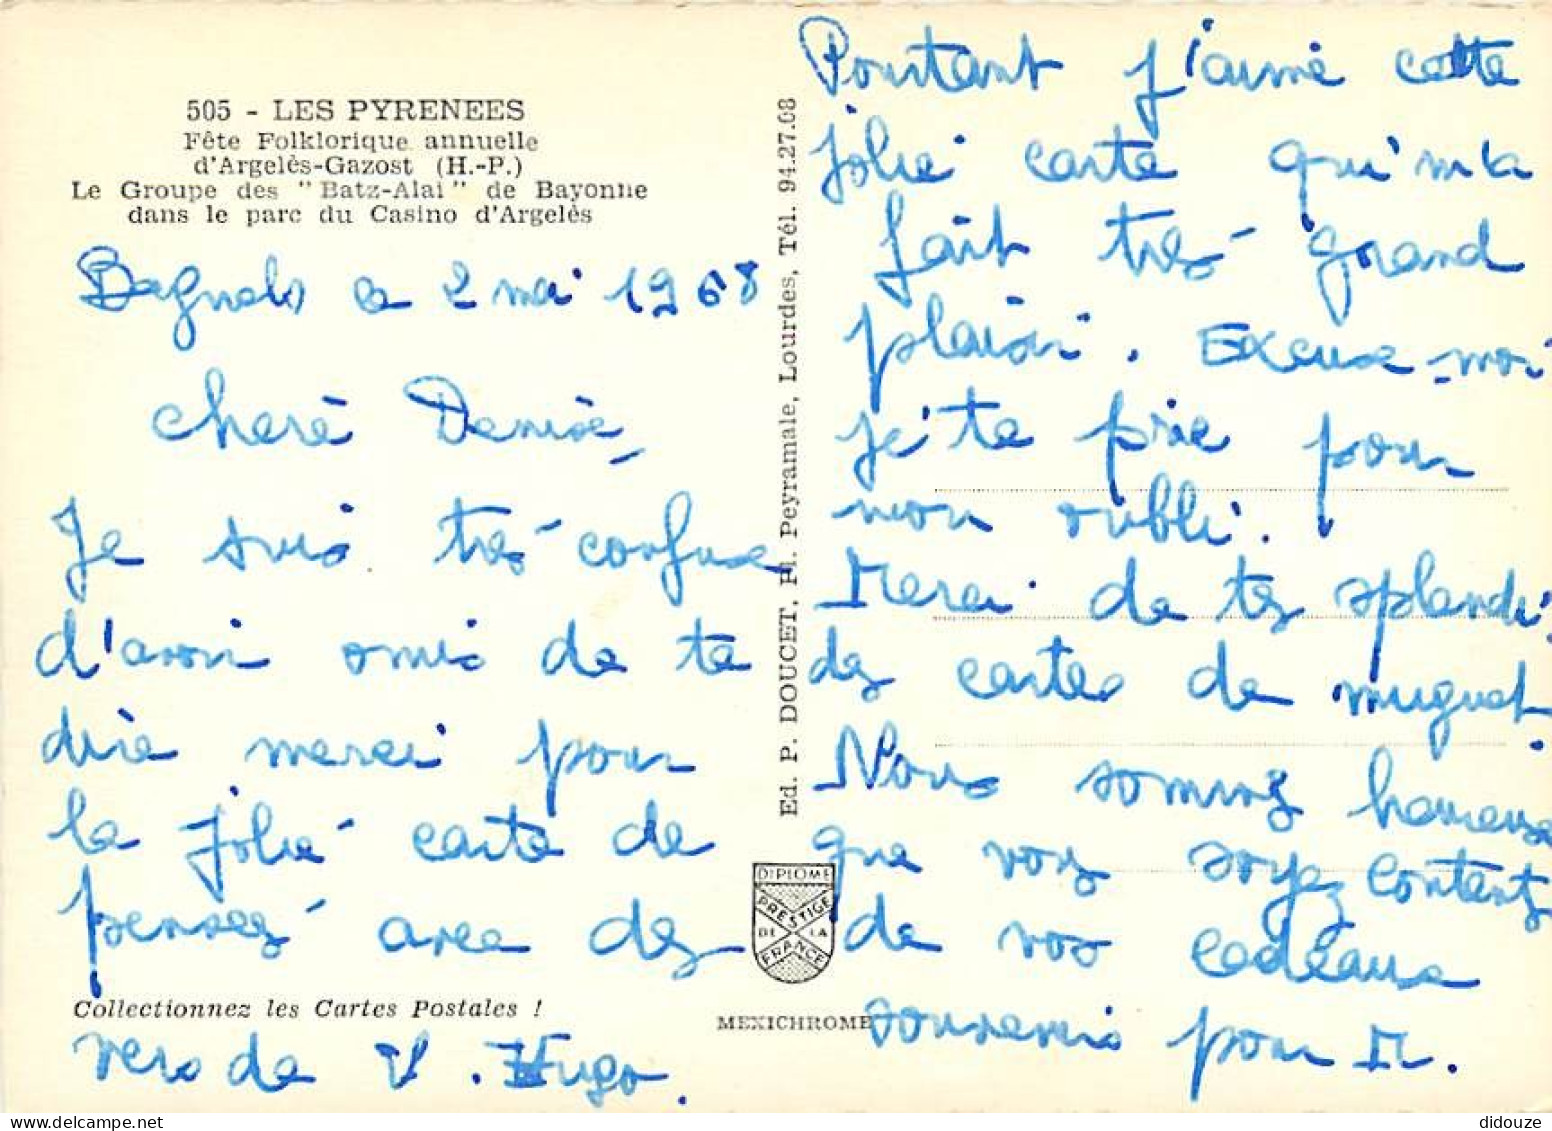 505 - LES PYRENEES
Fête Folklorique annuelle
d'Argelès-Gazost (H.-P.)
Le Groupe des "Batz-Alai" de Bayonne
dans le parc du Casino d'Argelès
Bagnols ce 2 mai 1968
cherè Denise,
Je suis très confuse
d'avoir omis de te
dire merci pour
la jolie carte de
pensez avec des
Collectionnez les Cartes Postales !
vers de V. Hugo.
Ed. P. DOUCET, Pl. Peyramale, Lourdes, Tél. 94.27.08
DIPLOME
PRESTIGE
DE LA
FRANCE
MEXICHROME
Pourtant j'aime cette
jolie carte qui m'a
fait très grand
plaisir. Excuse-moi
je te prie pour
mon oubli.
Merci de tes splendi-
des cartes de muguet
Nous sommes heureuse
que vous soyez contents
de vos cadeaux
souvenirs pour M.
didouze